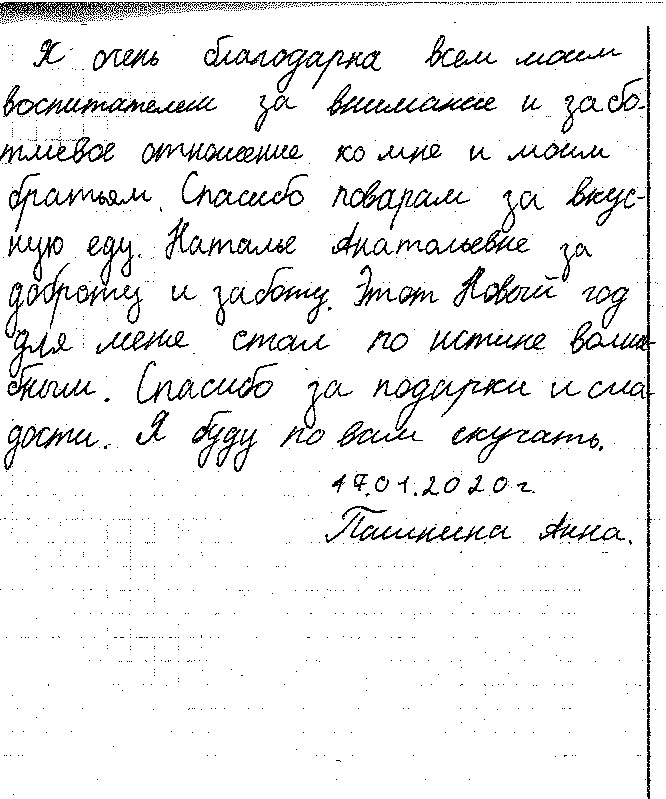 Я очень благодарна всем моим
воспитателем за внимание и забо-
тливое отношение ко мне и моим
братьям. Спасибо поварам за вкус-
ную еду. Наталье Анатольевне за
доброту и заботу. Этот Новый год
для меня стал по истине волше-
бным. Спасибо за подарки и сла-
дости. Я буду по вам скучать.
17.01.2020г.
Пашнина Анна.